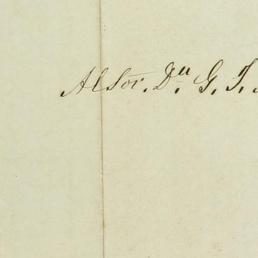 Al Sor. Dn G. T.